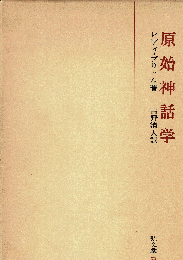 原始神話学
レヴィ・ブリュル著
古野清人訳
弘文堂